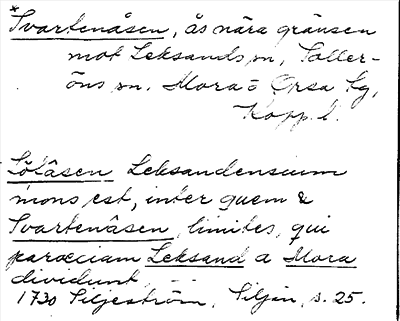 * Svartenåsen, ås nära gränsen
mot Leksands sn, Soller-
öns sn. Mora o Orsa tg,
Kopp. l.
Sölåsen Leksandensium
mons est, inter quem &
Svartenåsen, limites, qui
parœciam Leksand a Mora
dividunt, ...
1730 Siljeström, Siljan, s. 25.